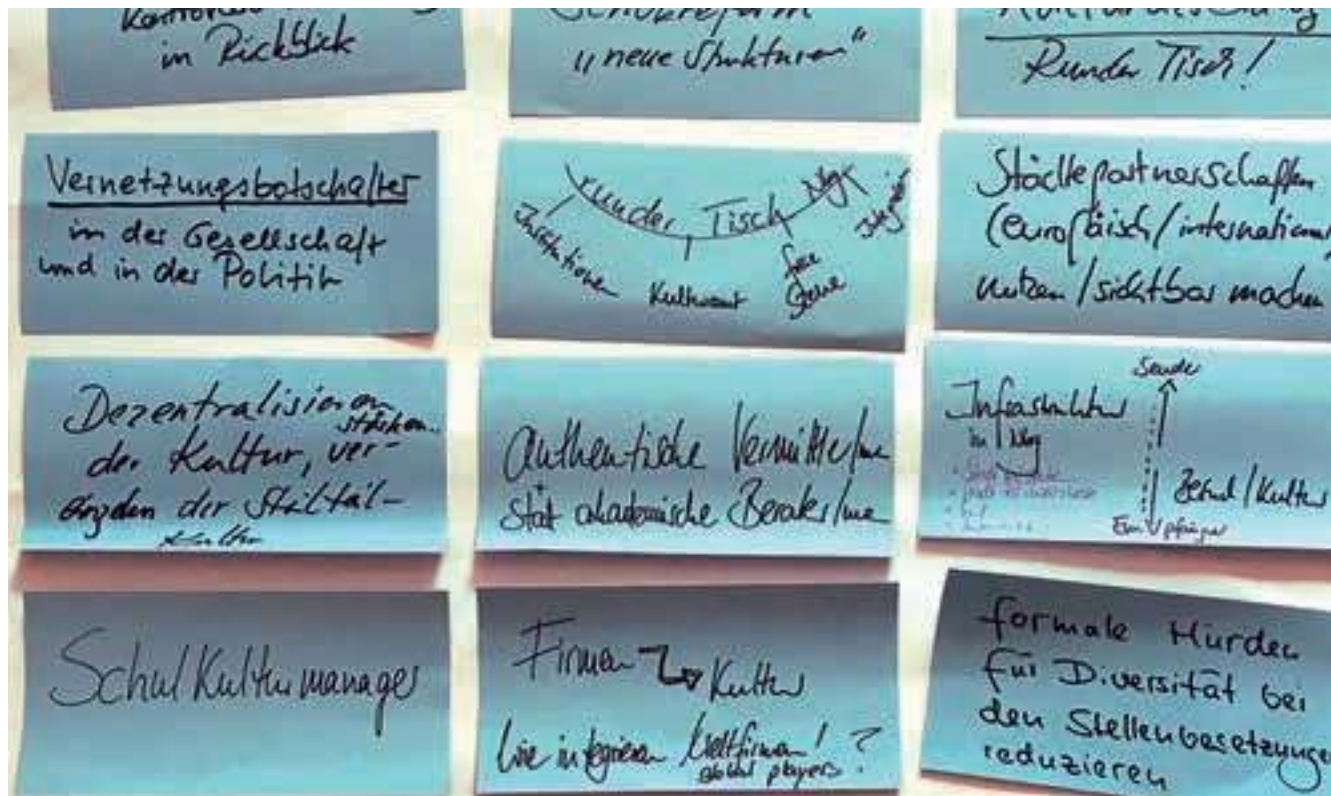 in Rückblick
"neue Strukturen"
Runder Tisch!
Vernetzungsbotschafter
in der Gesellschaft
und in der Politik
runder Tisch Nbg
Institutionen
Kulturamt
freie
Szene
Städtepartnerschaften
(europäisch/international
nutzen/sichtbar machen
Dezentralisieren
stärken
der Kultur, ver-
der
Kultur
authentische Vermittler/inne
statt akademische Berater/inne
Sender
Infrastruktur
in Nbg
/Kultur
Empfänger
Schulkulturmanager
Firmen
Kultur
Wie integrieren Weltfirmen! ?
global players
formale Hürden
für Diversität bei
den Stellenbesetzungen
reduzieren